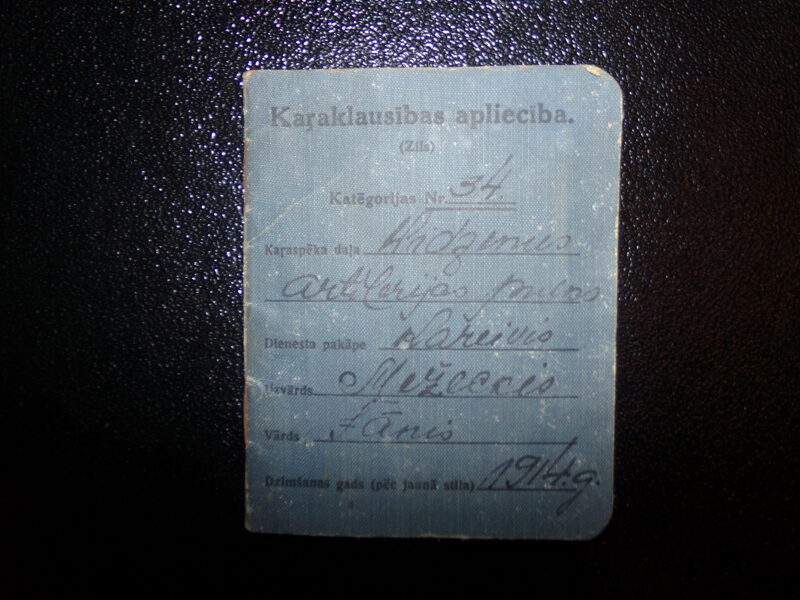 Kaŗaklausības apliecība.
(Zila)
Katēgorijas Nr. 34.
Kaŗaspēka daļa Vidzemes
artilērijas pulks
Dienesta pakāpe Kareivis
Uzvārds Mežeckis
Vārds Jānis
Dzimšanas gads (pēc jaunā stila) 1914.g.